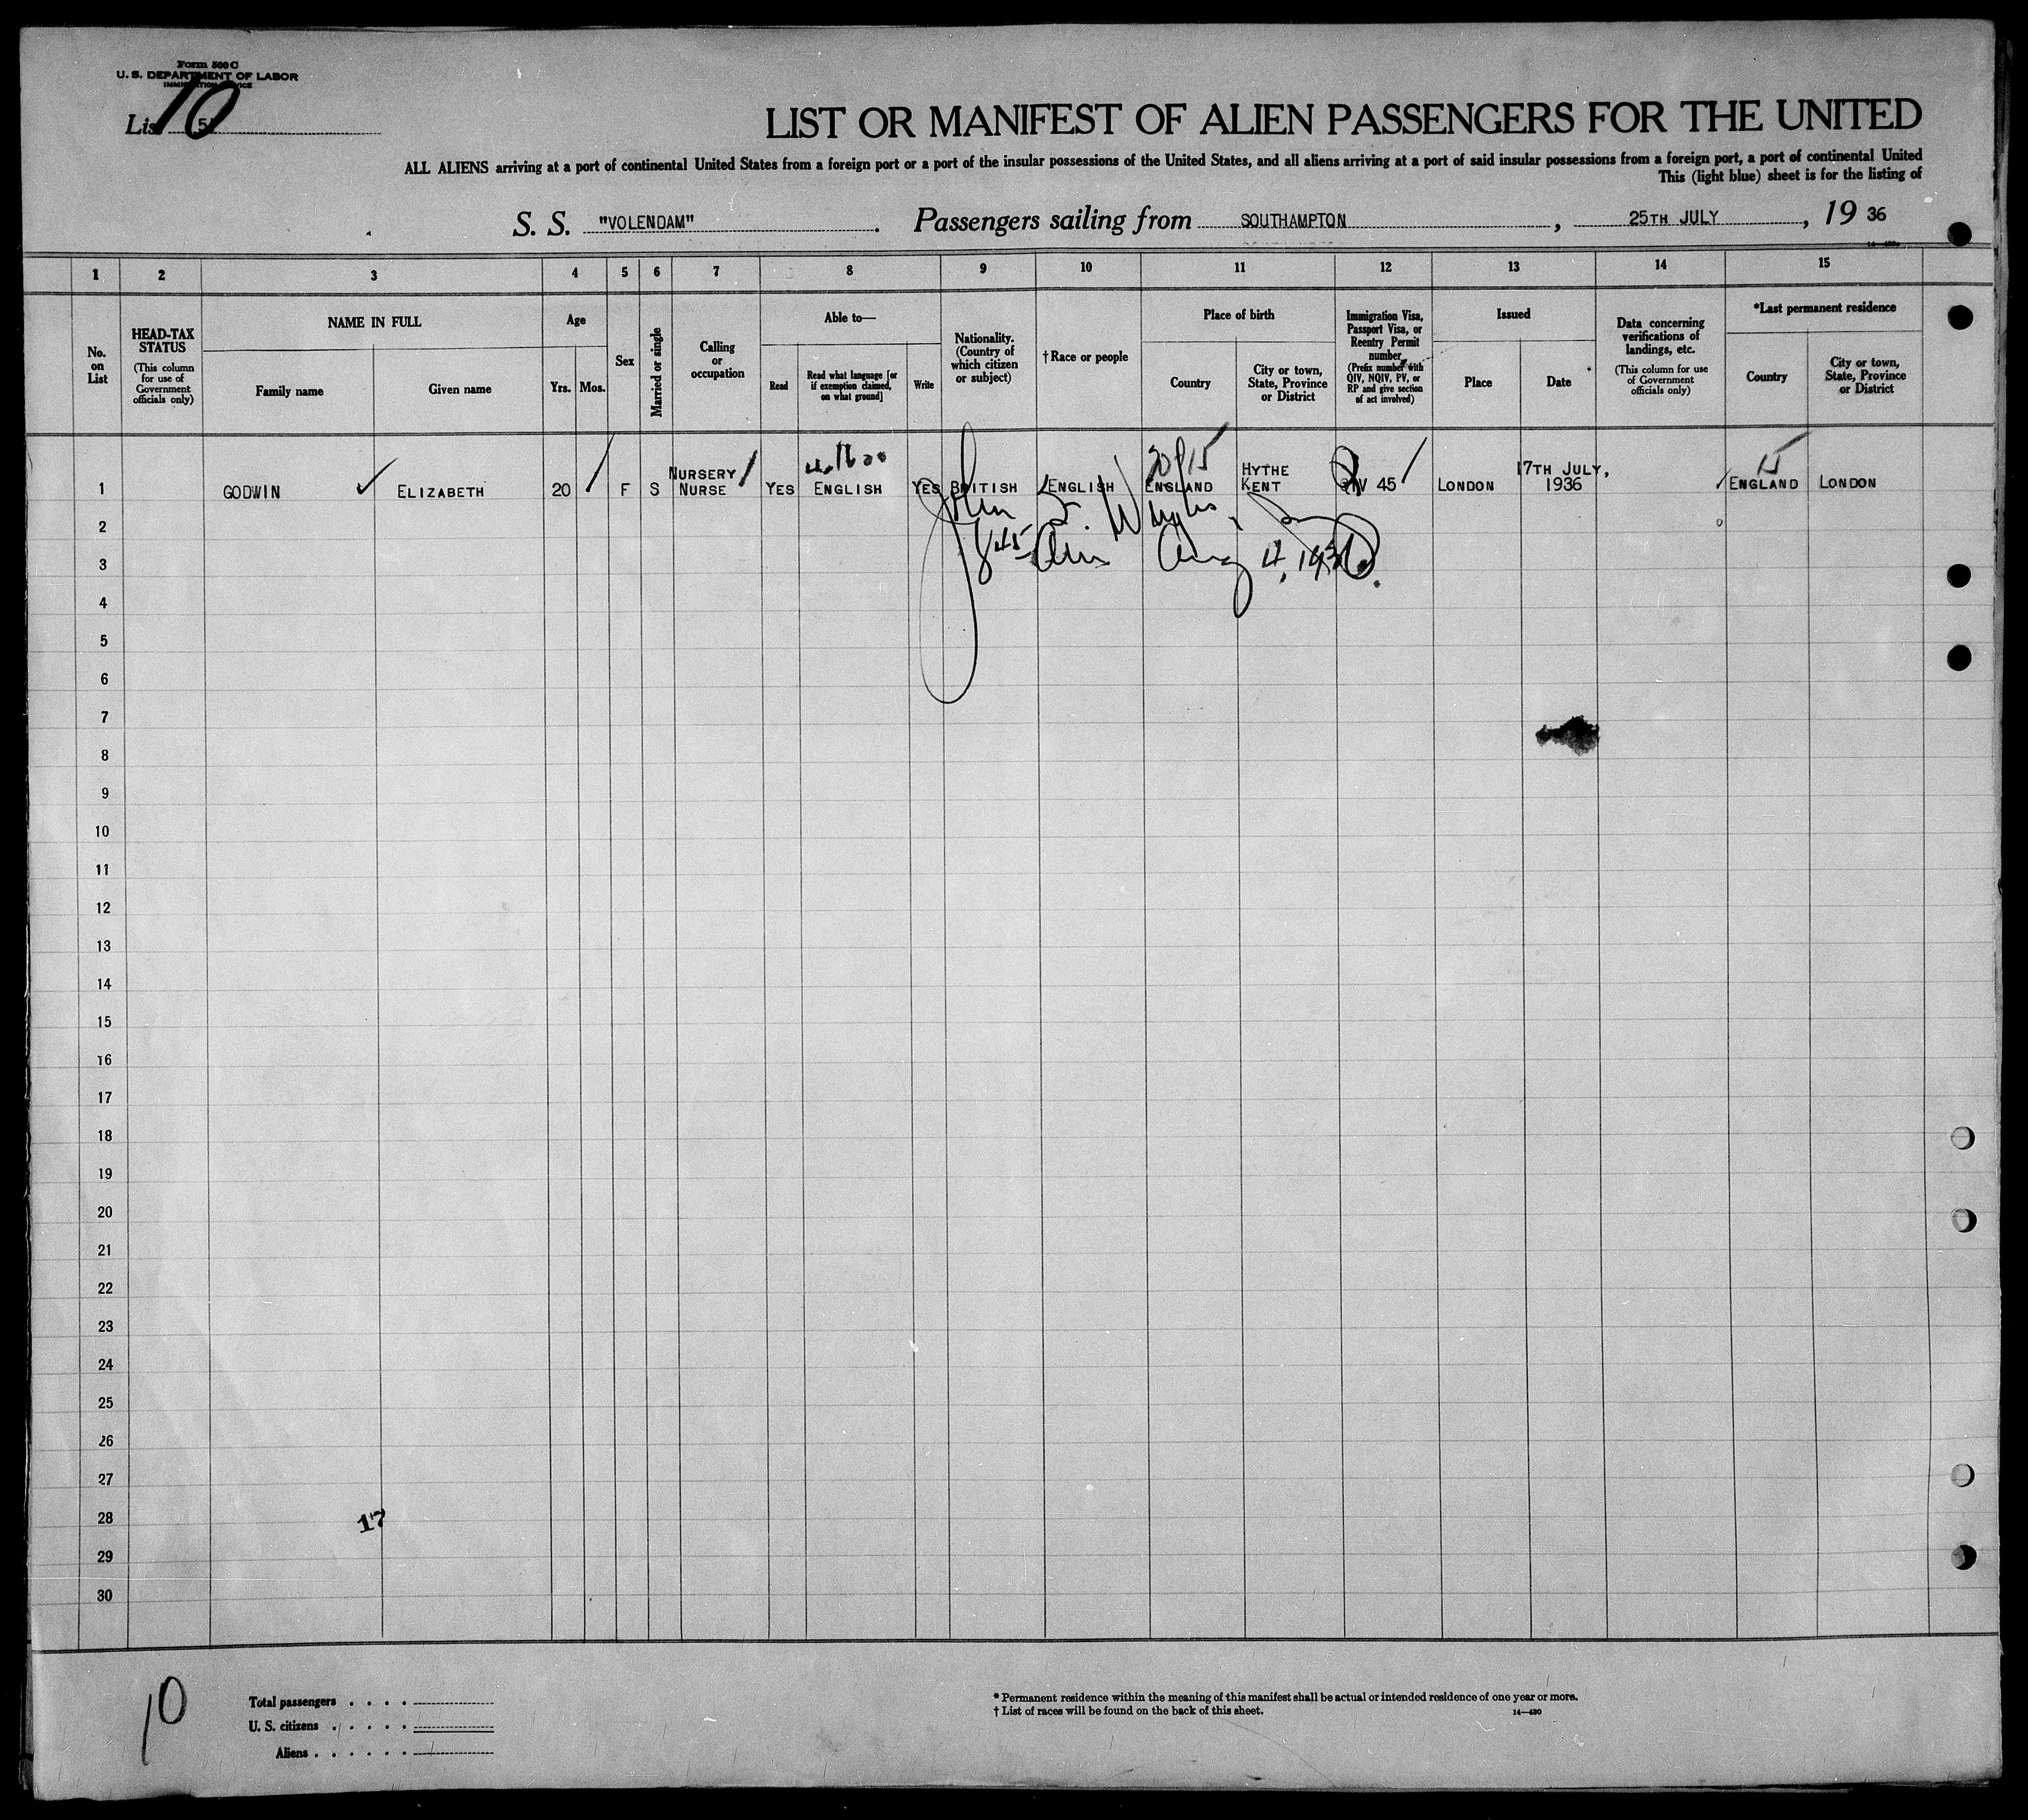 Form 500 C
U. S. DEPARTMENT OF LABOR
List 10
LIST OR MANIFEST OF ALIEN PASSENGERS FOR THE UNITED
ALL ALIENS arriving at a port of continental United States from a foreign port or a port of the insular possessions of the United States, and all aliens arriving at a port of said insular possessions from a foreign port, a port of continental United
This (light blue) sheet is for the listing of
S. S. "VOLENDAM". Passengers sailing from SOUTHAMPTON, 25TH JULY, 19 36
1 2 3 4 5 6 7 8 9 10 11 12 13 14 15
No. on List
HEAD-TAX STATUS
(This column for use of Government officials only)
NAME IN FULL
Family name
Given name
Age
Yrs. Mos.
Sex
Married or single
Calling or occupation
Able to—
Read
Read what language [or if exemption claimed, on what ground]
Write
Nationality. (Country of which citizen or subject)
†Race or people
Place of birth
Country
City or town, State, Province or District
Immigration Visa, Passport Visa, or Reentry Permit number
(Prefix number with QIV, NQIV, PV, or RP and give section of act involved)
Issued
Place
Date
Data concerning verifications of landings, etc.
(This column for use of Government officials only)
*Last permanent residence
Country
City or town, State, Province or District
1 GODWIN ELIZABETH 20 F S NURSERY NURSE YES ENGLISH YES BRITISH ENGLISH ENGLAND HYTHE KENT QIV 45 LONDON 17TH JULY, 1936 ENGLAND LONDON
15
John S.
2
845 Am Aug 4, 1936.
3
4
5
6
7
8
9
10
11
12
13
14
15
16
17
18
19
20
21
22
23
24
25
26
27
28 17
29
30
10
Total passengers
U. S. citizens
Aliens
* Permanent residence within the meaning of this manifest shall be actual or intended residence of one year or more.
† List of races will be found on the back of this sheet.
14—430